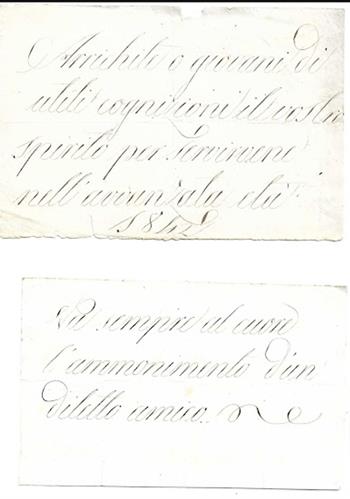 Arrichite o giovani di
utili cognizioni il vostro
spirito per servirvene
nell'avvanzata età
1842
Và sempre al cuore
l'ammonimento d'un
diletto amico.